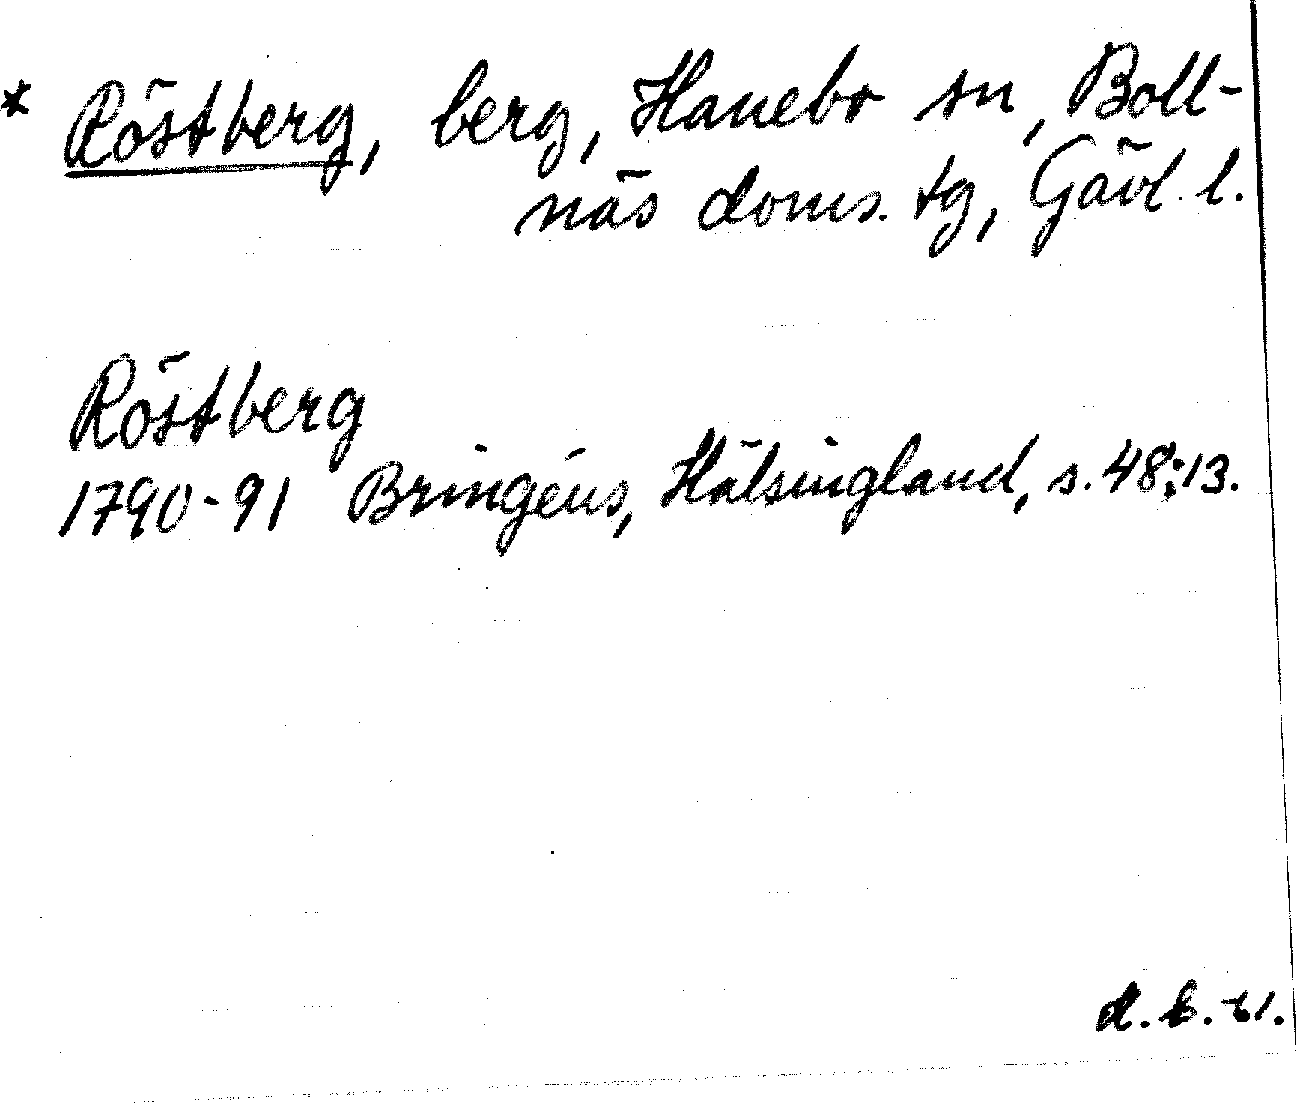 * Röstberg, berg, Hanebo sn, Boll-
näs doms. tg, Gävl. l.
Röstberg
1790-91 Bringéus, Hälsingland, s. 48:13.
d. b. 61.